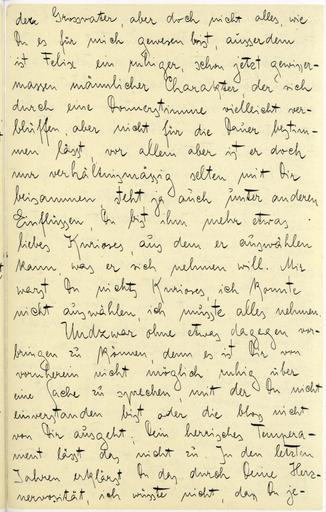 der Grossvater, aber doch nicht alles, wie
Du es für mich gewesen bist, ausserdem
ist Felix ein ruhiger, schon jetzt gewisser-
massen männlicher Charakter, der sich
durch eine Donnerstimme vielleicht ver-
blüffen, aber nicht für die Dauer bestim-
men lässt, vor allem aber ist er doch
nur verhältnismässig selten mit Dir
beisammen, steht ja auch unter anderen
Einflüssen, Du bist ihm mehr etwas
liebes Kurioses, aus dem er auswählen
kann, was er sich nehmen will. Mir
warst Du nichts Kurioses, ich konnte
nicht auswählen, ich musste alles nehmen.
Undzwar ohne etwas dagegen vor-
bringen zu können, denn es ist Dir von
vornherein nicht möglich ruhig über
eine Sache zu sprechen, mit der Du nicht
einverstanden bist oder die bloss nicht
von Dir ausgeht; Dein herrisches Tempera-
ment lässt das nicht zu. In den letzten
Jahren erklärst Du das durch Deine Herz-
nervosität, ich wüsste nicht, dass Du je-